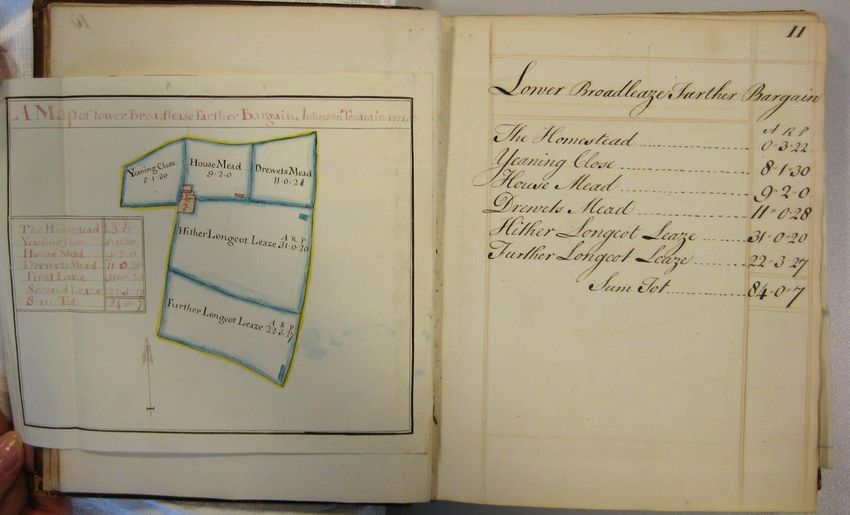 A Map of lower Broadlease Farther Bargain, Johnson Tenant in
Yeaning Close
8-1-30
House Mead
9-2-0
Drewets Mead
11-0-28
Hither Longcot Leaze
A R P
31-0-20
Further Longcot Leaze
A R P
22-3-27
The Homestead
Yeaning Close 8-1-30
House Mead 9-2-0
Drewets Mead 11-0-28
First Leaze 31-0-20
Second Leaze 22-3-27
Sum Tot. 84-0-7
11
Lower Broadleaze Further Bargain
A R P
The Homestead 0-3-22
Yeaning Close 8-1-30
House Mead 9-2-0
Drewets Mead 11-0-28
Hither Longcot Leaze 31-0-20
Further Longcot Leaze 22-3-27
Sum Tot 84-0-7